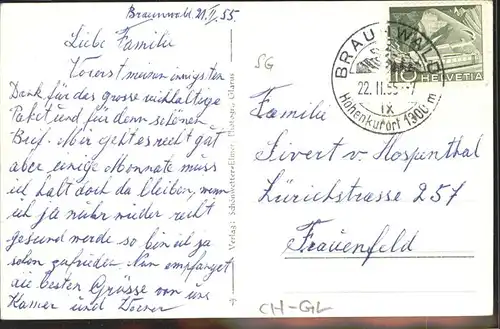 Braunwald. 21/II 55.
Liebe Familie
Vorerst meinen innigsten
Dank für das grosse reichhaltige
Paket und für dem schönen
Brief. Mir geht es recht gut
aber einige Monnate muss
ich halt doch da bleiben, wenn
ich ja nuhr wieder recht
gesund werde so bin ich ja
schon zufrieden. Nun empfanget
die besten Grüsse von uns
Kamer und
Verlag: Schönwetter-Elmer, Photogr., Glarus
SG
HELVETIA
10
BRAUNWALD
22.II.55.-7
IX
Höhenkurort 1300 m
Familie
Sivert v. Hospenthal
Zürichstrasse 257
Frauenfeld
CH-GL